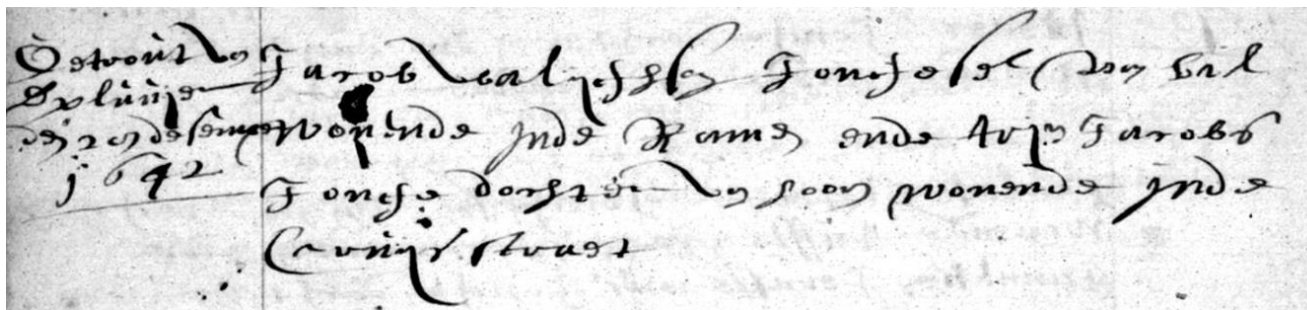 Getrout
den 28 desember
1642
Jacob walichsen Jonchgesel van
wonende inde Ramen ende trijn Jacobs
Jonge dochter van hoorn wonende inde
Cruijsstraet